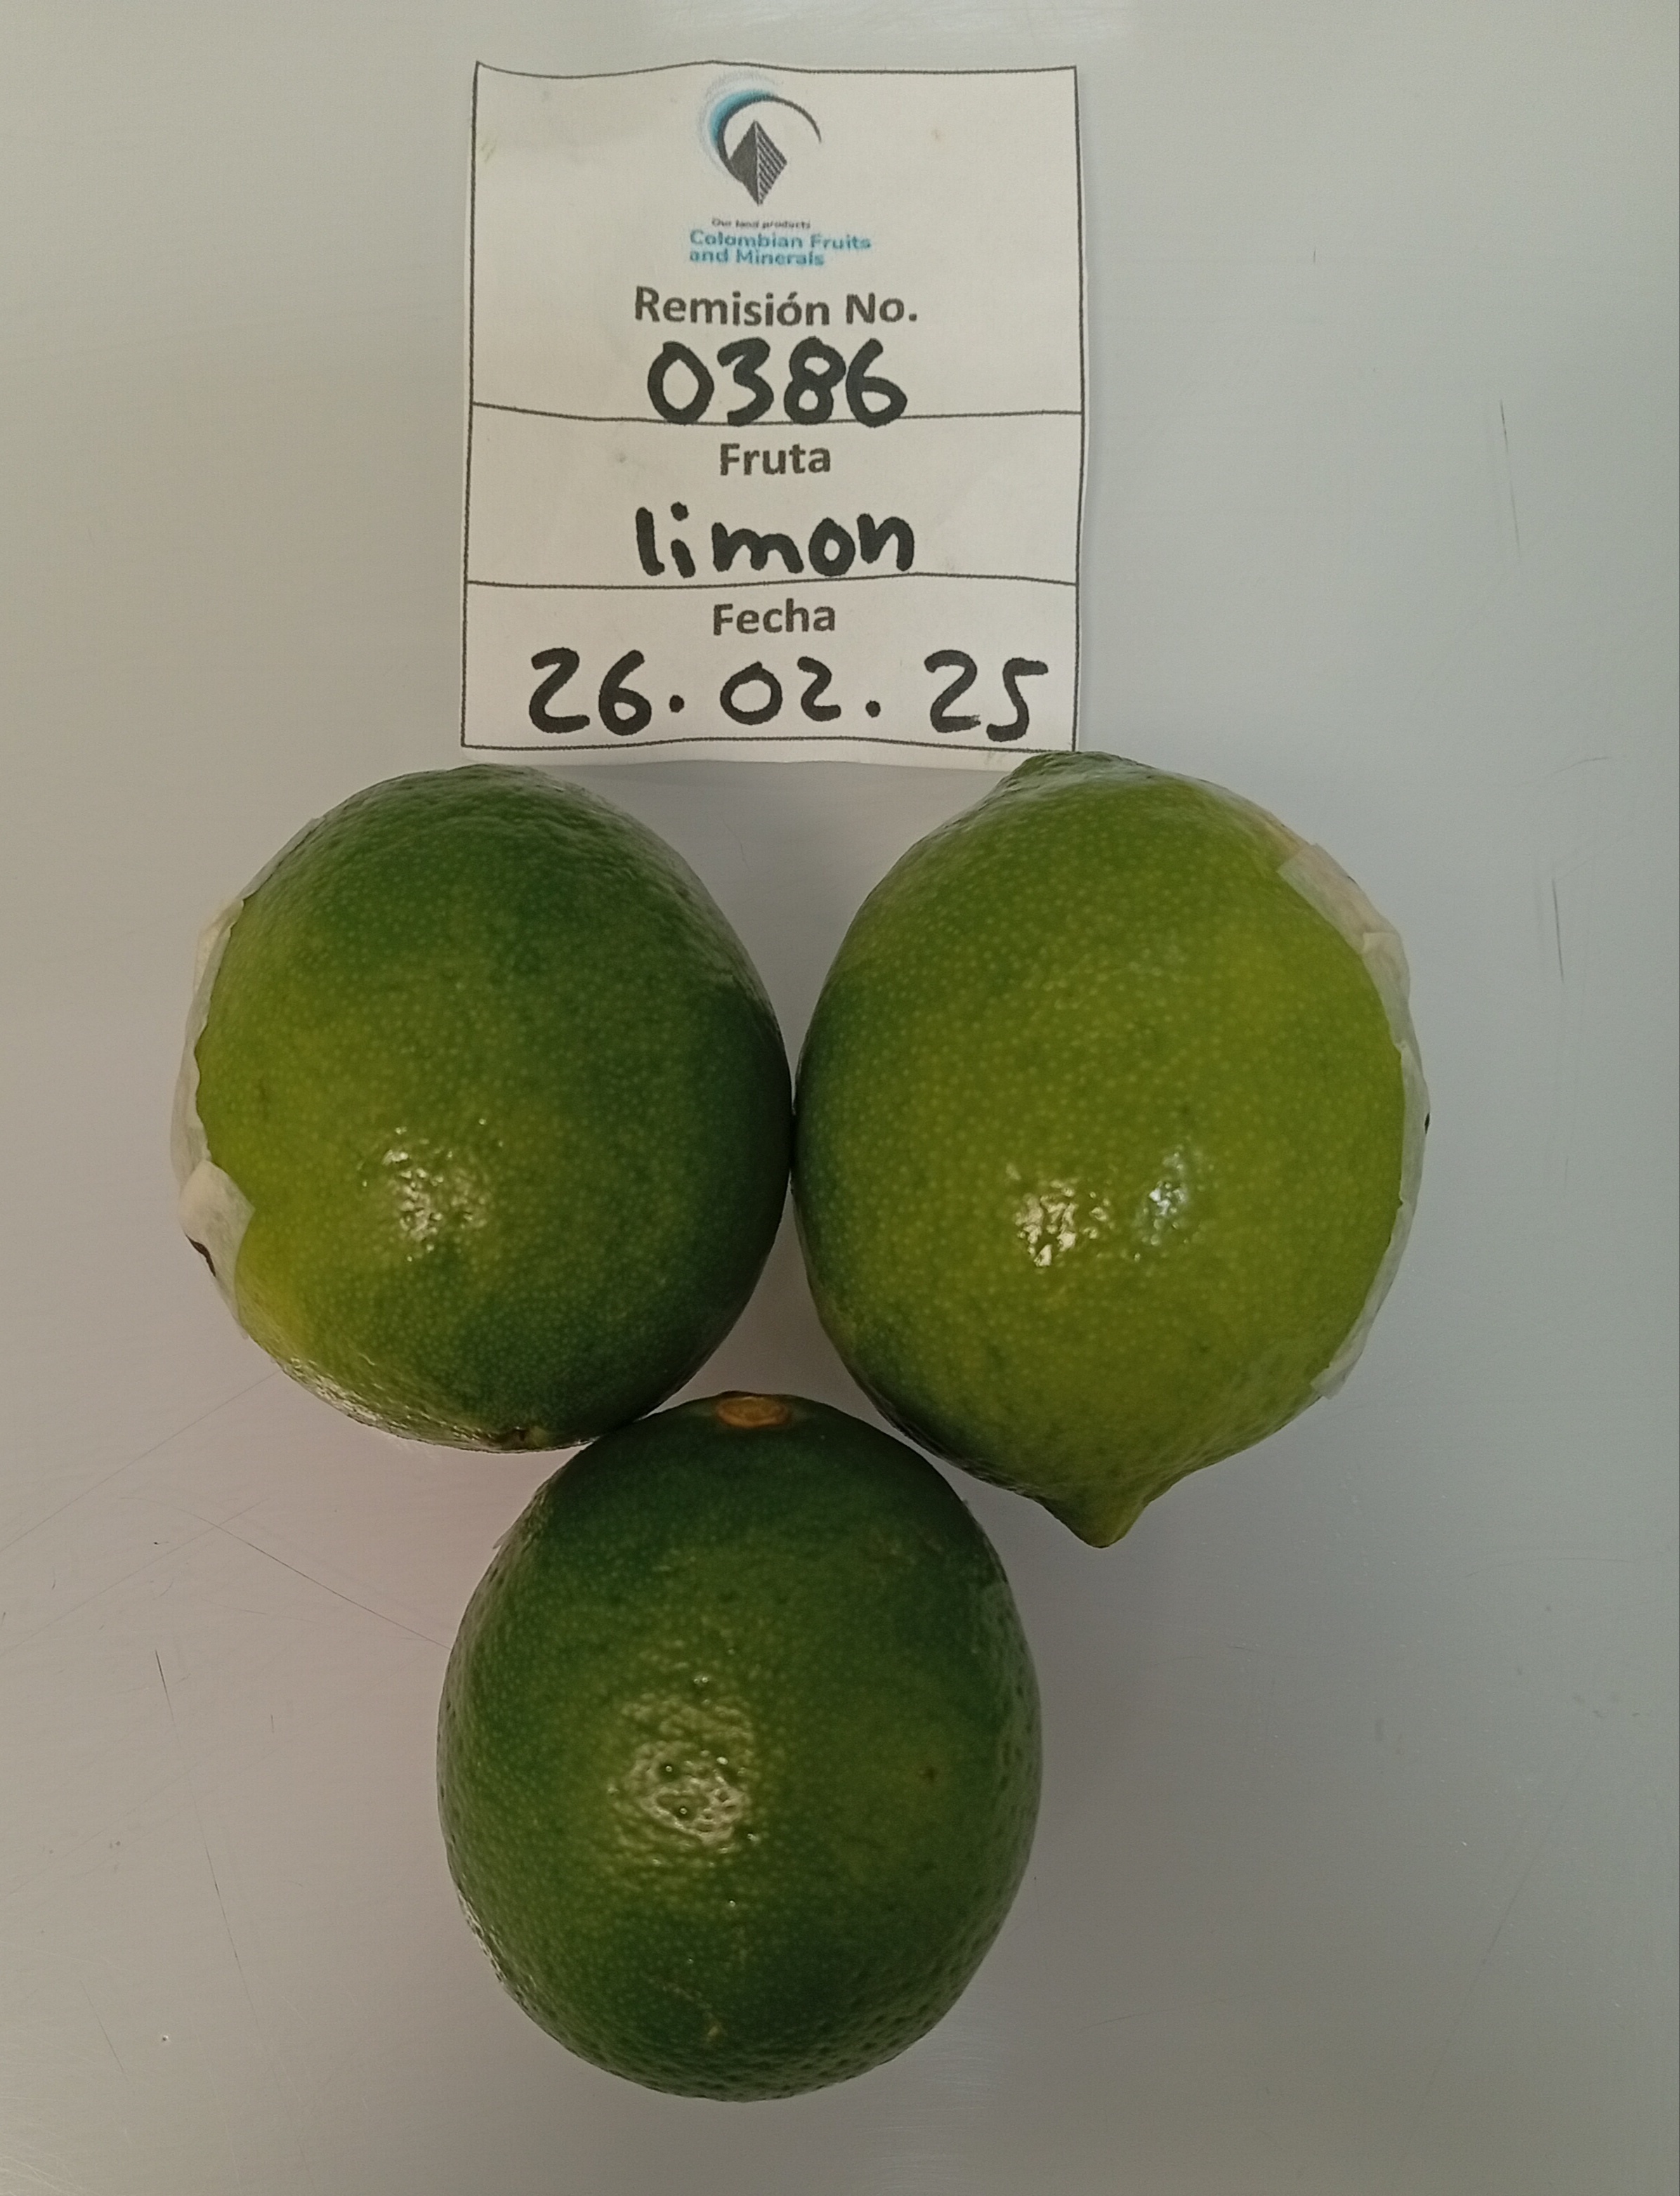 Our land products
Colombian Fruits
and Minerals
Remisión No.
0386
Fruta
limon
Fecha
26.02.25